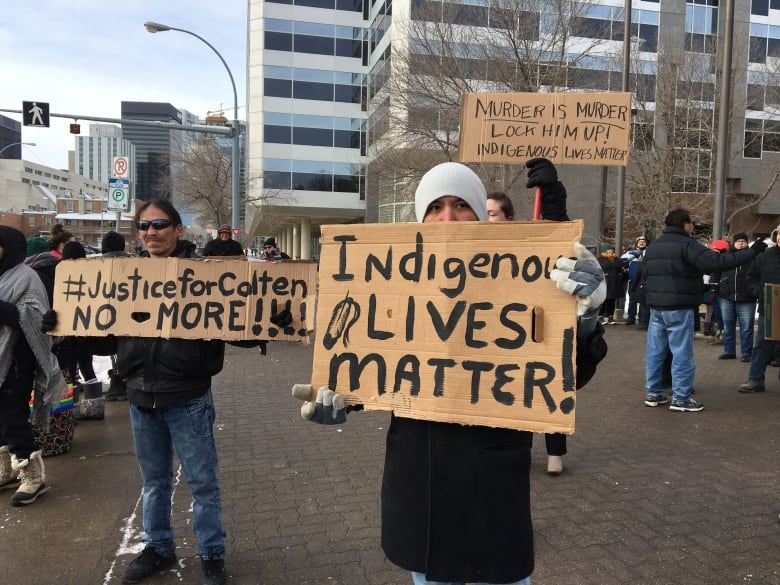 MURDER IS MURDER
LOCK HIM UP!
INDIGENOUS LIVES MATTER
#JusticeforColten
NO MORE!!!!
Indigenou
LIVES
MATTER!
P